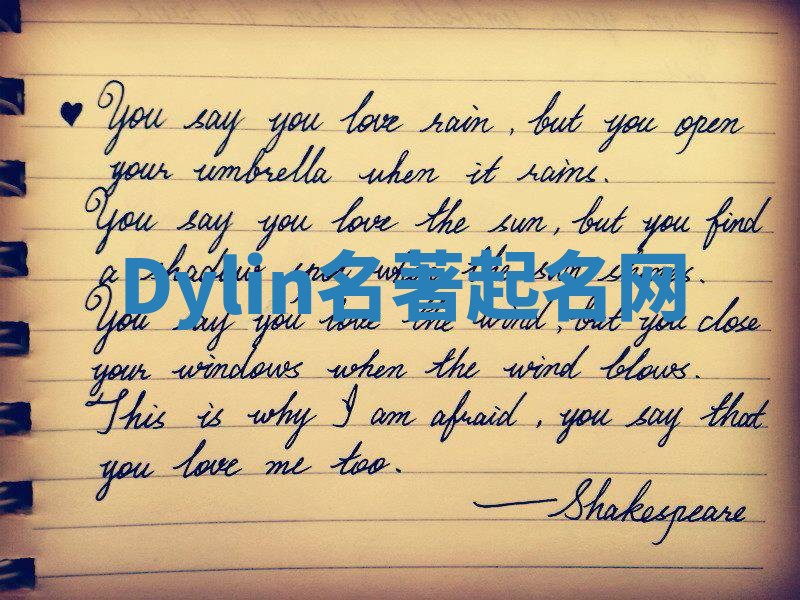 You say you love rain, but you open
your umbrella when it rains.
You say you love the sun, but you find
a shadow spot when the sun shines.
Dylin名著起名网
You say you love the wind, but you close
your windows when the wind blows.
This is why I am afraid, you say that
you love me too.
—Shakespeare